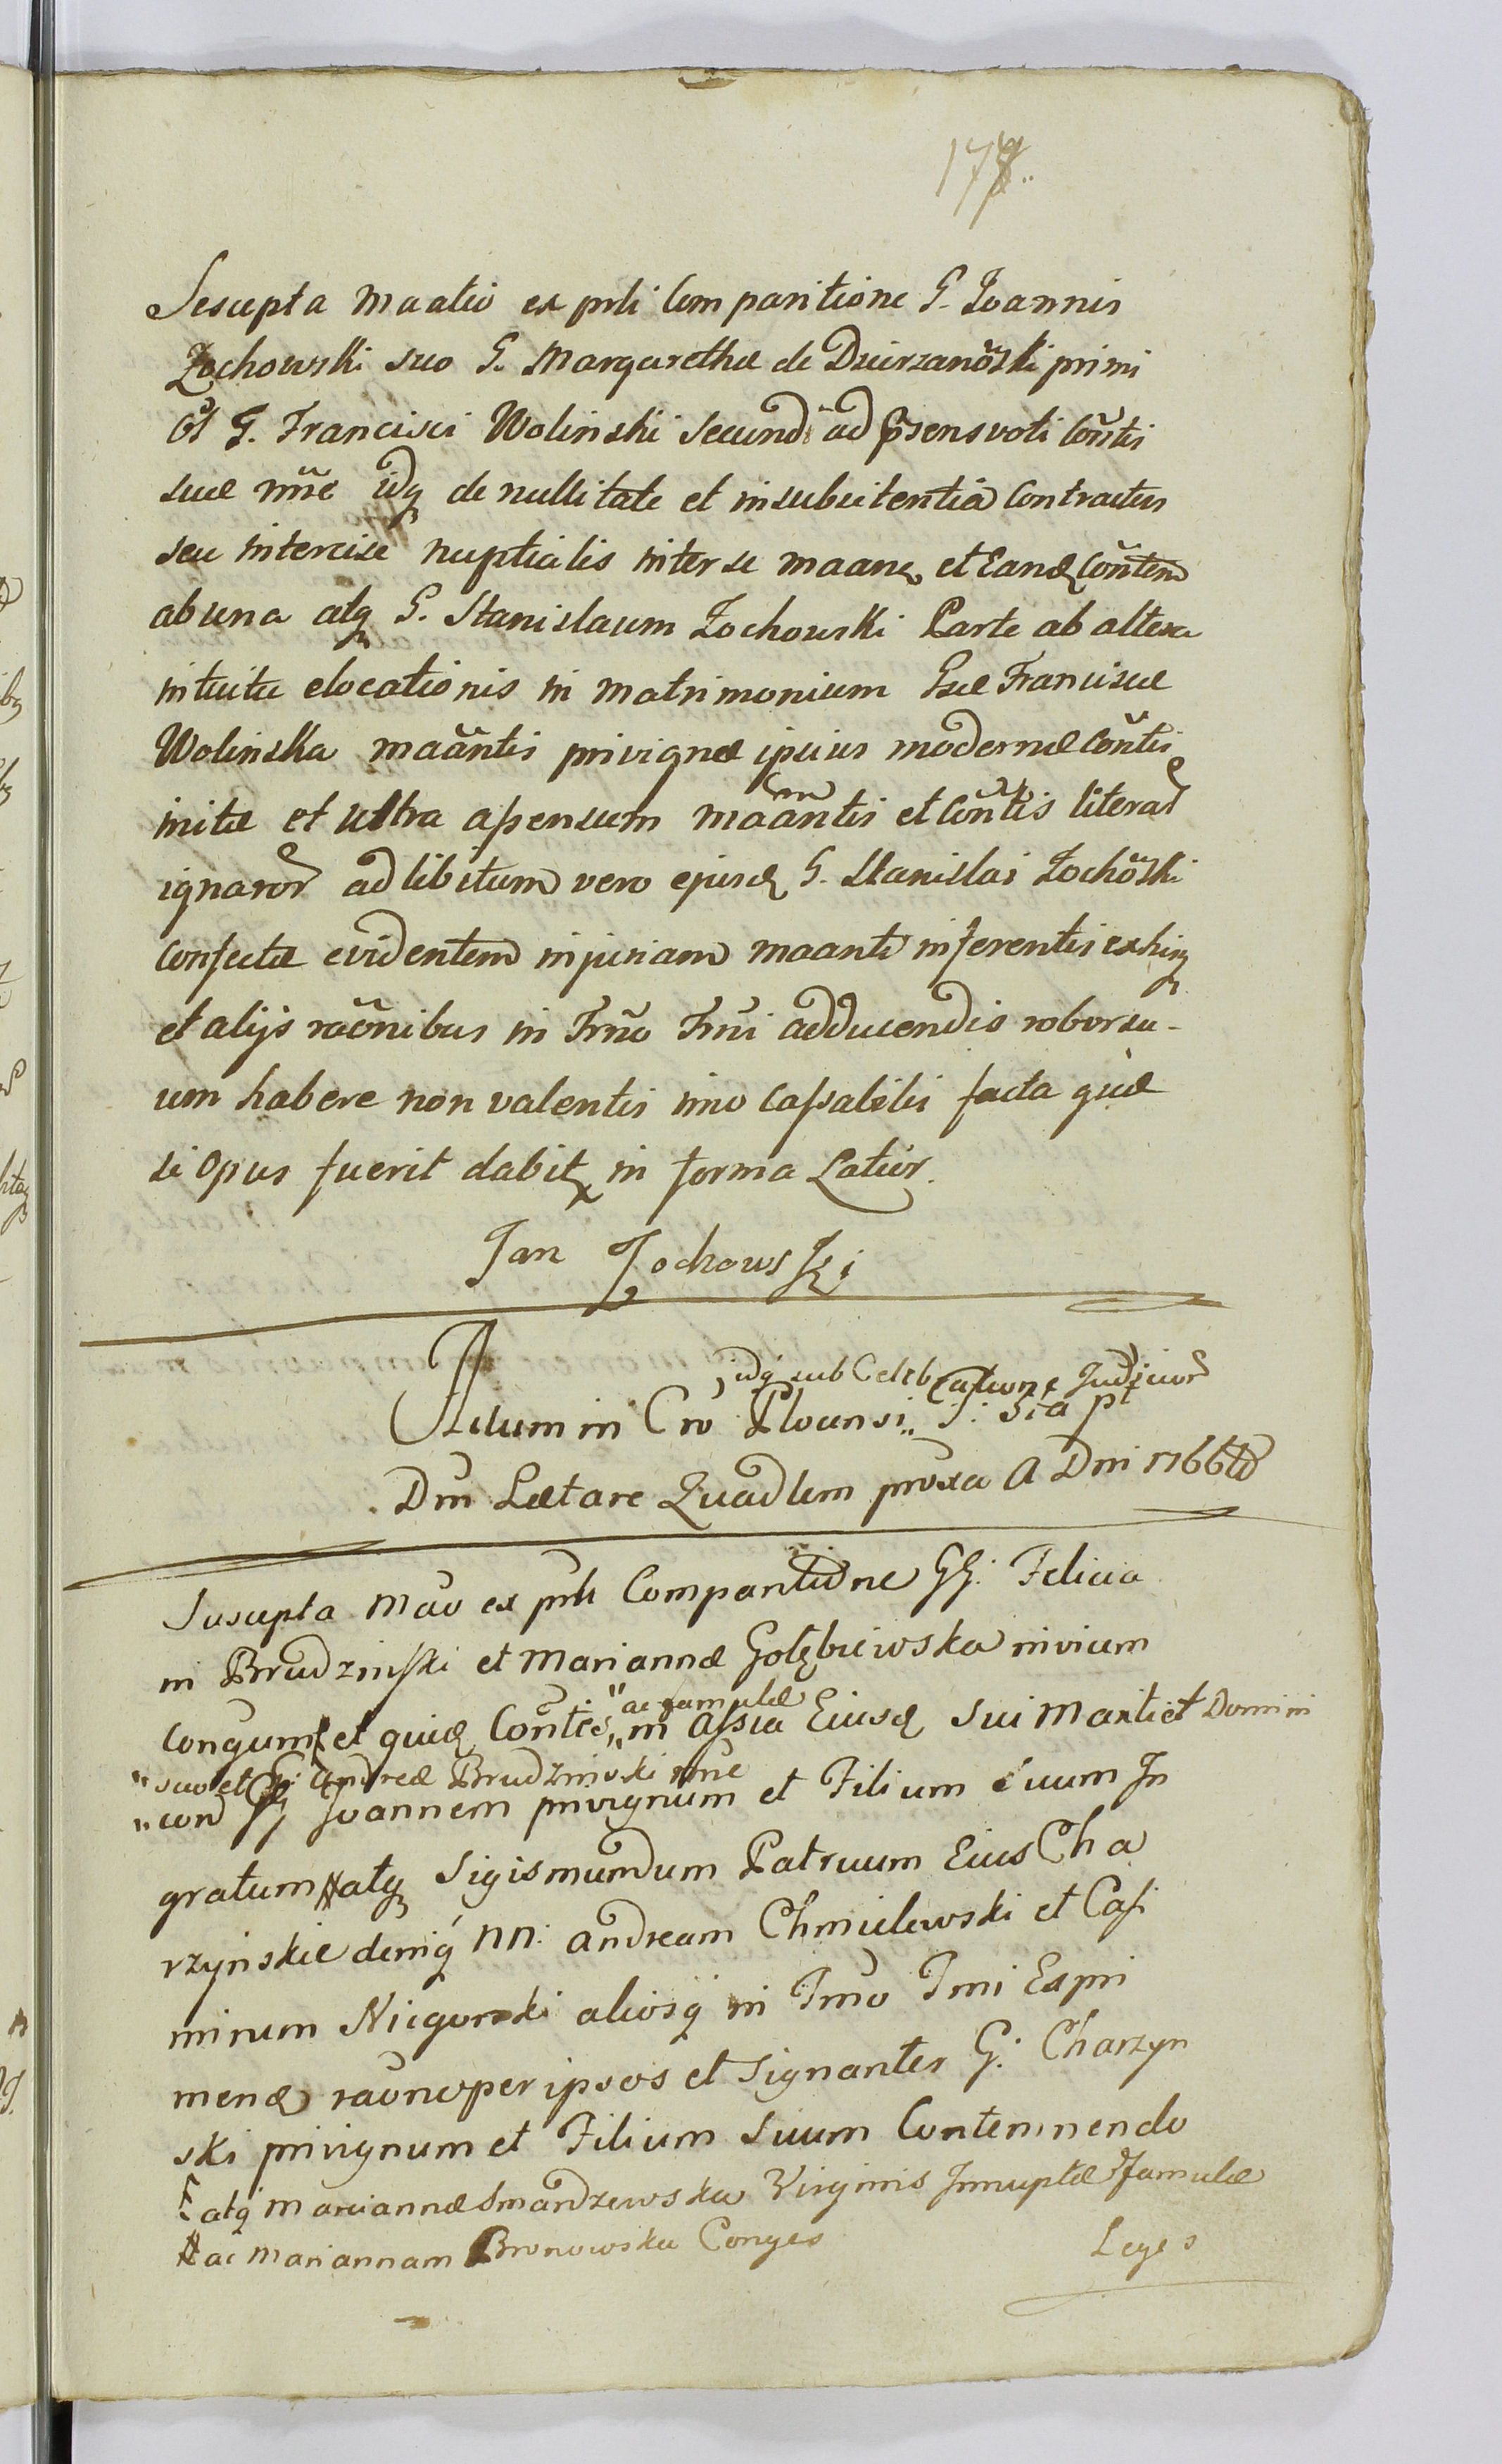 177.
Suscepta Maatio ex prli Comparitione G. Joannis
Żochowski suo G. Margarethæ de Dzierzanõski primi
G. Francisci Wolinski Secundi ad præsens voti Cõntis
suæ nñe idq de nullitate et insubsitentia Contractus
seu intercisæ nuptialis inter se maanq et Eandq Cõntem
ab una atq G. Stanislaum Żochowski Parte ab altera
intuitu elocationis in matrimonium Gsæ Franciscæ
Wolinska maãntis privignæ ipsius modernæ Cõntis
initæ et ultra assensum maãntis et Cõntis literar
ignaror ad libitum vero ejusdq G. Stanislai Żochõski
confectæ evidentem injuriam maanti inferentis ex hisq
et alijs raõnibus in Trño Trñi adducendis robor su-
um habere non valentis imo Cassabilis facta quæ
si opus fuerit dabitq in forma Latior.
Jan Żochowski
idq sub Celebratione Judicior
Actum in Cro Plocensi „ F: 3ia pt
Dm Lætare Quadlem proxa A Dni 1766to
Suscepta Mao ex prli Comparitione GG: Felicia
ni Brudzinski et Mariannæ Gołębiewska invicem
Congum et quidq Cõntis „ac famulæ
„in Assia Eiusdq Sui Mariti et Domini
„suo et G: Andreæ Brudzinski nñe
„con G Joannem privignum et Filium Suum In
gratum # atq Sigismundum Patruum Eius Cha
rzynskie deniq NN: Andream Chmielewski et Casi
mirum Nigorski aliosq in Trño Trñi Expri
mendq raõne per ipsos et Signanter G: Charzyn
ski privignum et Filium Suum Contemnendo
atq Mariannæ Smardzewska Virginis Innuptæ Famulæ
# ac Mariannam Bronowska Conges
Leges